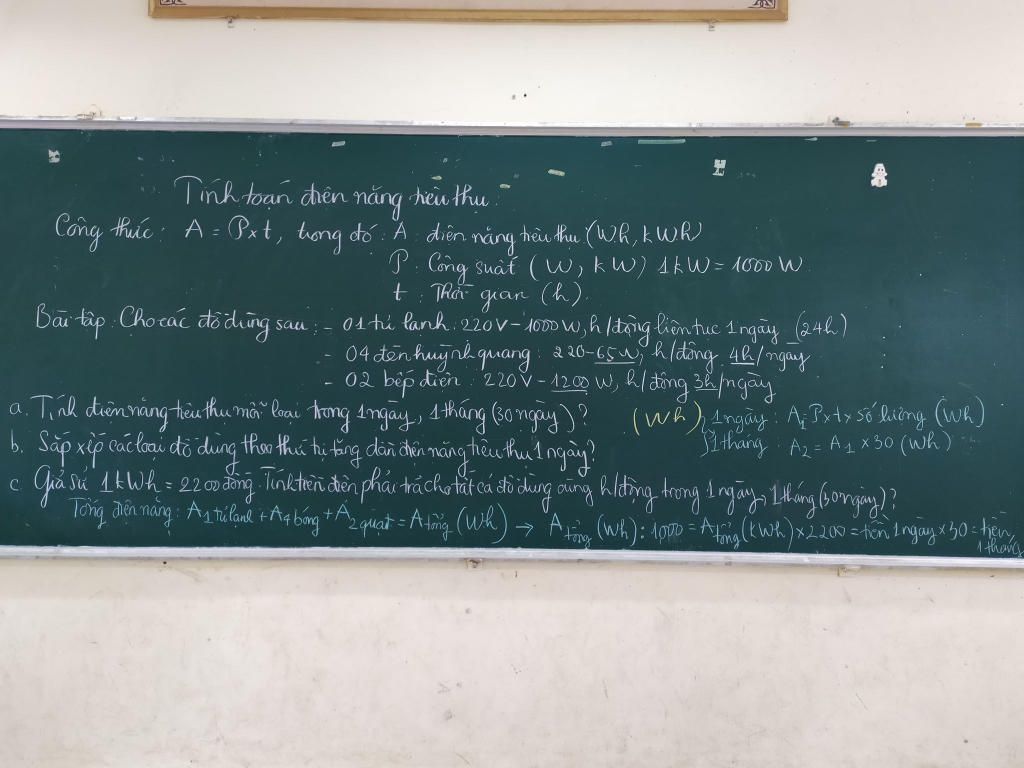 Tính toán điện năng tiêu thụ.
Công thức: A = P×t, trong đó: A: điện năng tiêu thụ (Wh, kWh)
P: Công suất (W, kW) 1kW = 1000W
t: Thời gian (h).
Bài tập: Cho các đồ dùng sau: - 01 tủ lạnh: 220V - 1000W, h/động liên tục 1 ngày (24h)
- 04 đèn huỳnh quang: 220-65W, h/động 4h/ngày
- 02 bếp điện: 220V - 1200W, h/động 3h/ngày
a. Tính điện năng tiêu thụ mỗi loại trong 1 ngày, 1 tháng (30 ngày)? (Wh) 1 ngày: A1 = P×t× số lượng (Wh)
1 tháng: A2 = A1 × 30 (Wh)
b. Sắp xếp các loại đồ dùng theo thứ tự tăng dần điện năng tiêu thụ 1 ngày?
c Giả sử 1kWh = 2200 đồng. Tính tiền điện phải trả cho tất cả đồ dùng cùng h/động trong 1 ngày, 1 tháng (30 ngày)?
Tổng điện năng: A 1 tủ lạnh + A 4 bóng + A 2 quạt = A tổng (Wh) → A tổng (Wh) : 1000 = A tổng (kWh) × 2200 = tiền 1 ngày × 30 = tiền 1 tháng